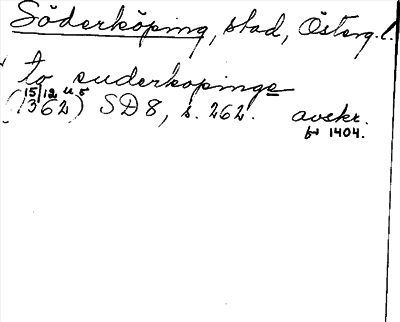 Söderköping, stad, Österg.l.
to suderkopinge
15/12 u. 5
(1362) SD 8, s. 262. avskr.
fr 1404.